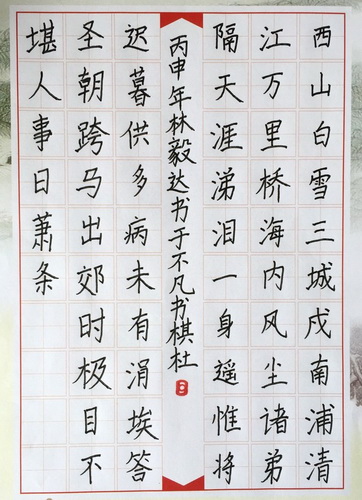 西山白雪三城戍南浦清
江万里桥海内风尘诸弟
隔天涯涕泪一身遥惟将
丙申年林毅达书于不凡书棋社
迟暮供多病未有涓埃答
圣朝跨马出郊时极目不
堪人事日萧条